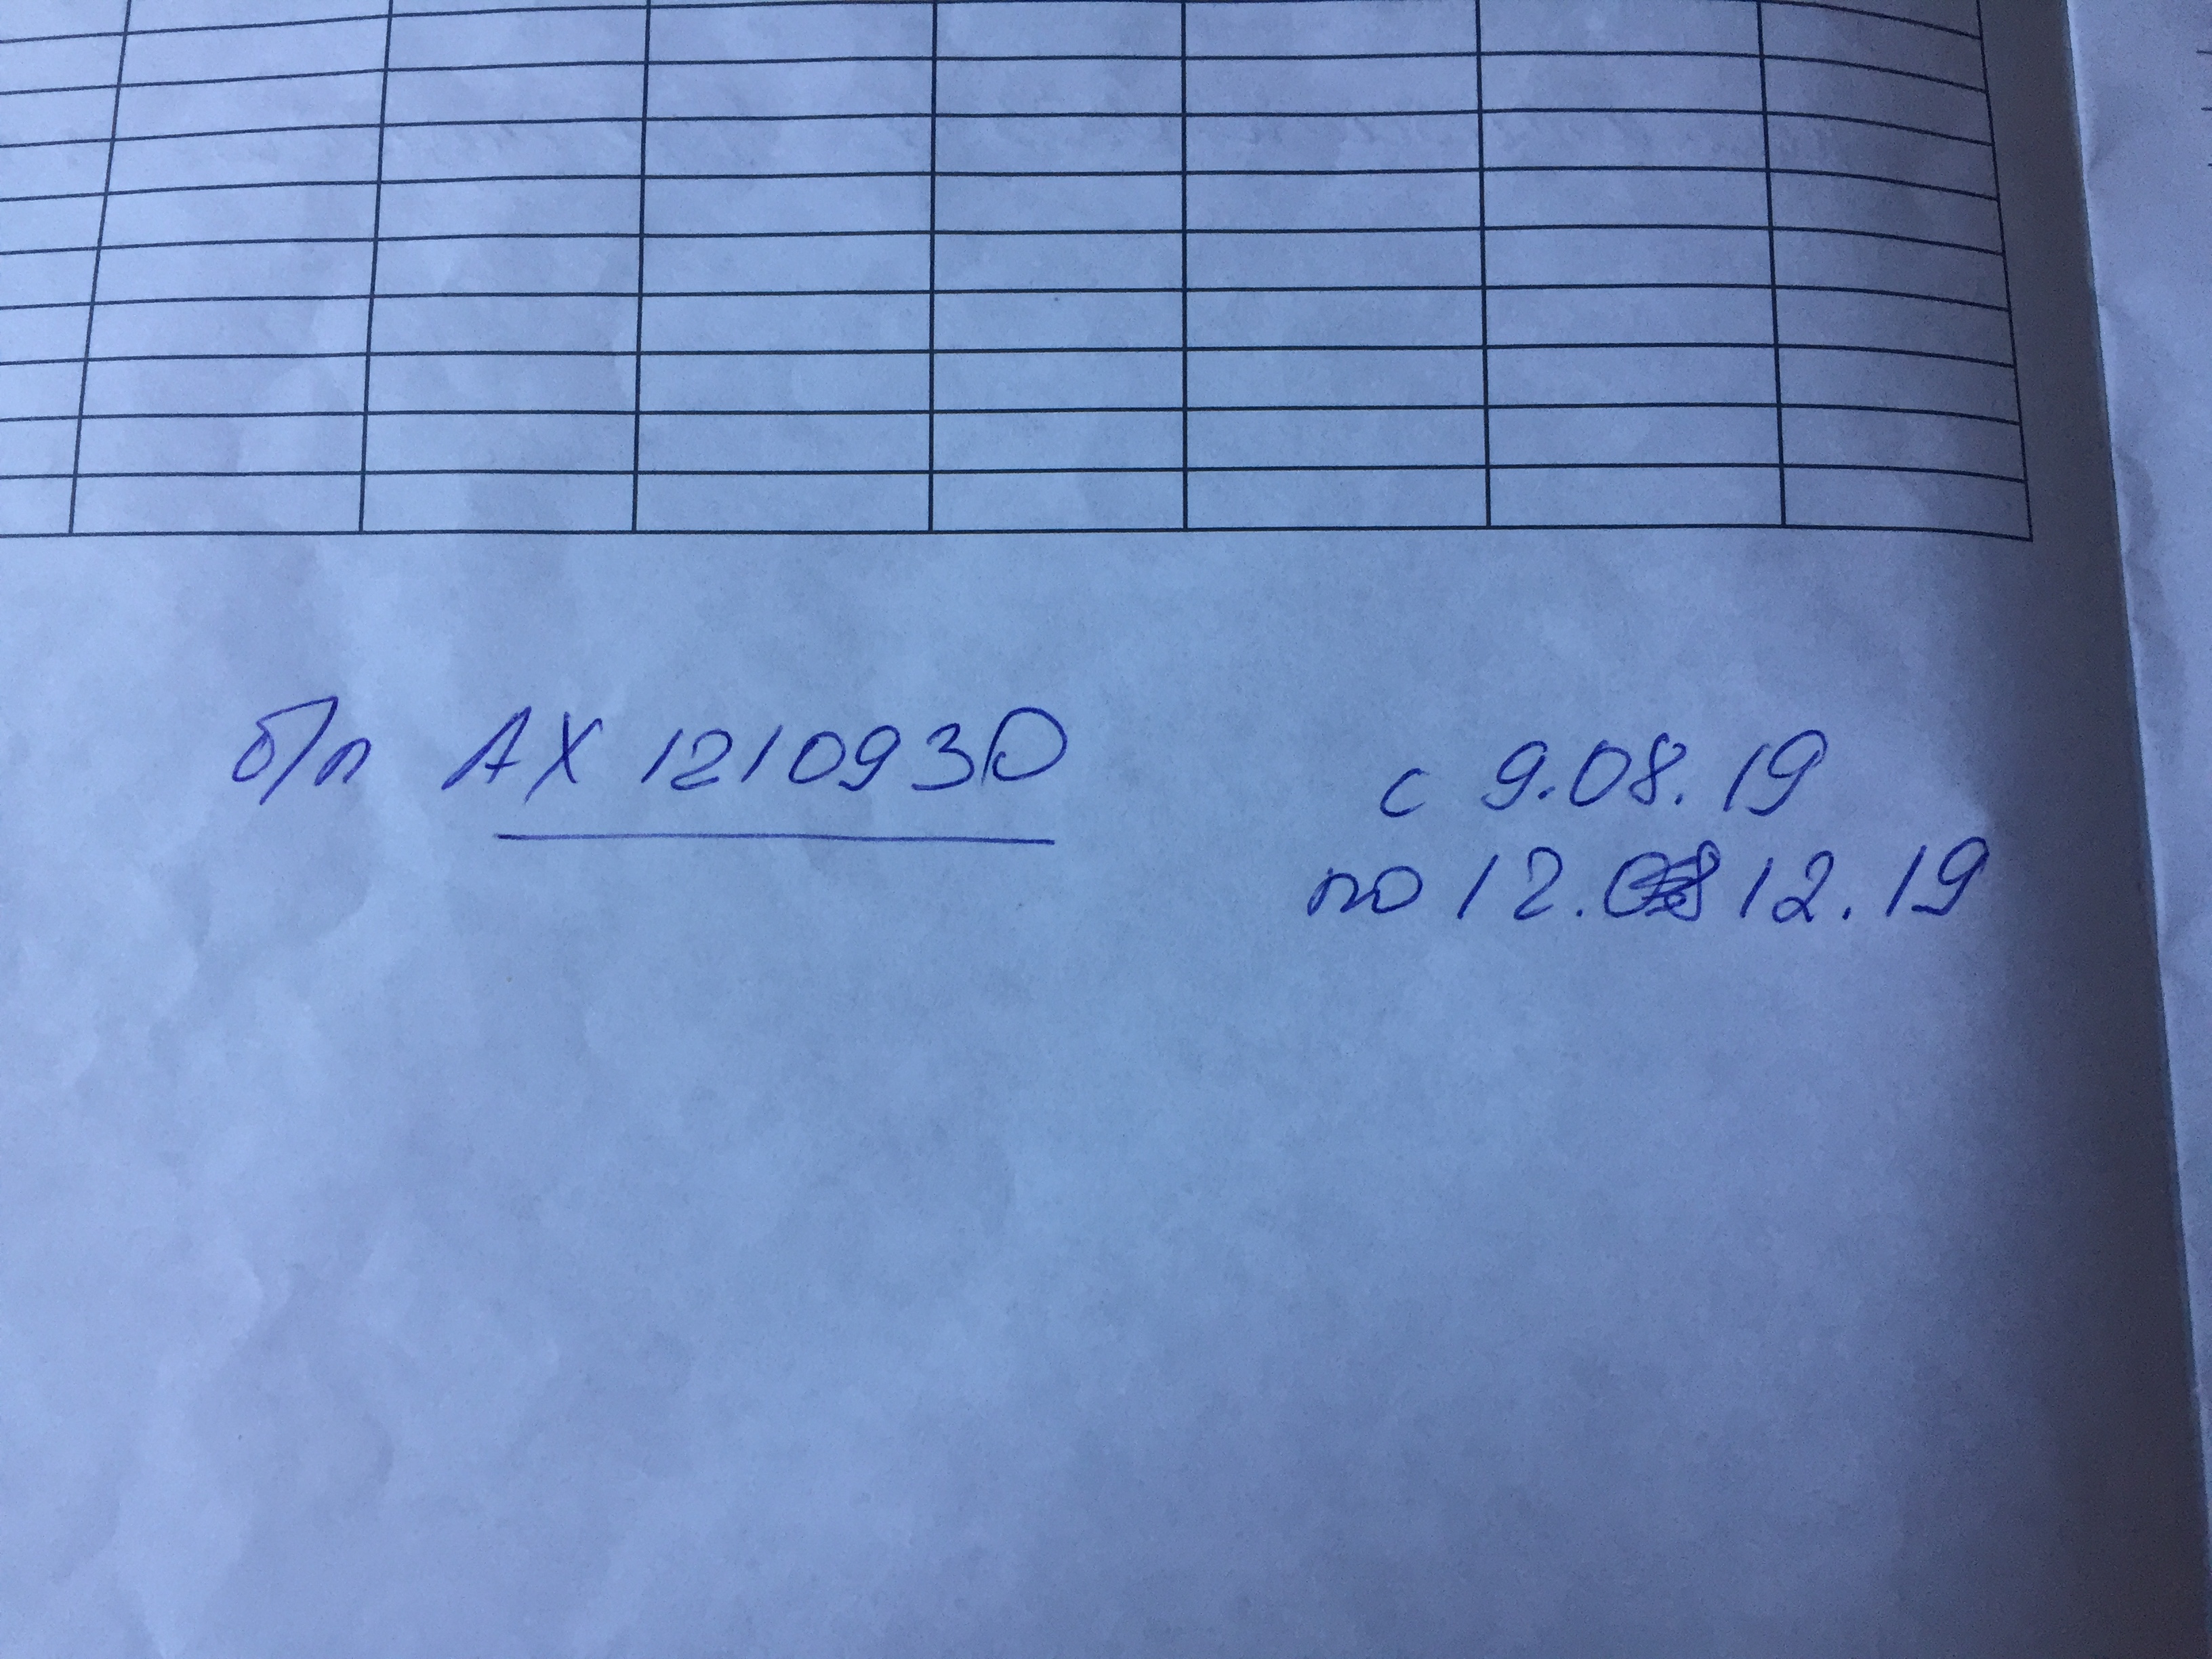 б/л АХ 1210930
с 9.08.19
по 12.12.19